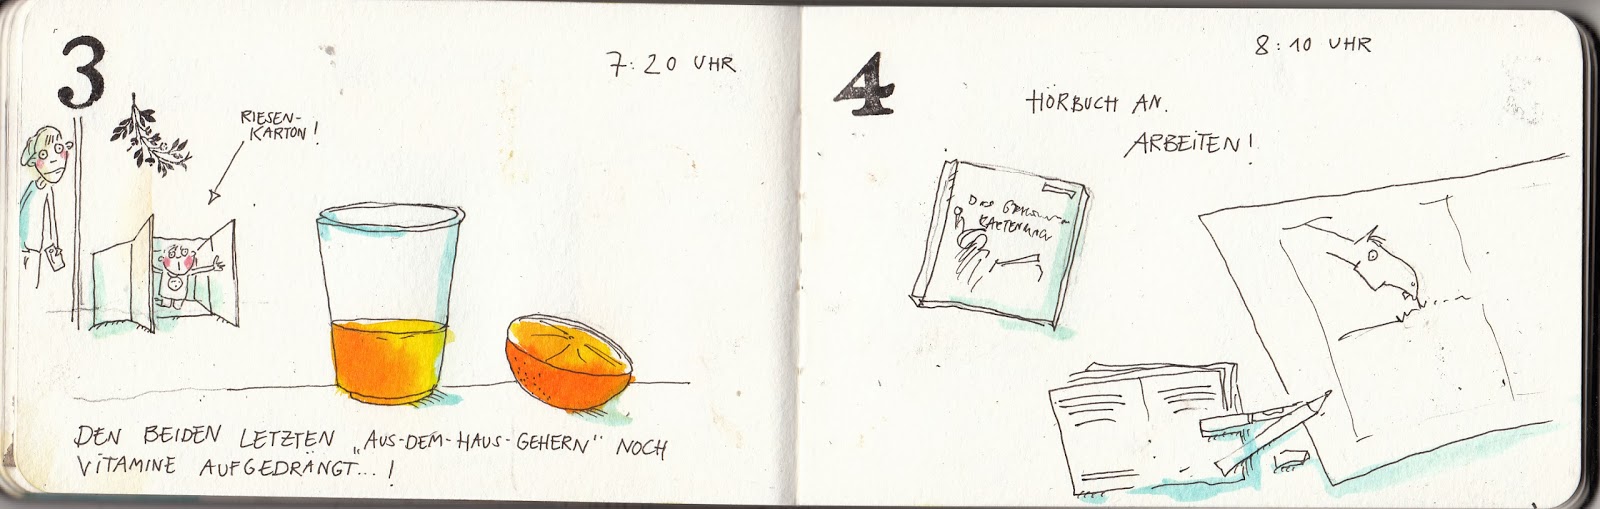 3
7:20 UHR
RIESEN-
KARTON!
DEN BEIDEN LETZTEN „AUS-DEM-HAUS-GEHERN" NOCH
VITAMINE AUFGEDRÄNGT...!
4
8:10 UHR
HÖRBUCH AN.
ARBEITEN!
DAS